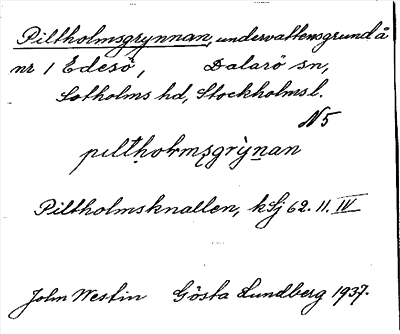 Piltholmsgrynnan, undervattensgrund å
nr 1 Edesö, Dalarö sn,
Sotholms hd, Stockholms l.
N 5
piltholmsgrỳnan
Piltholmsknallen, k Sj 62. 11. IV
John Westin Gösta Lundberg 1937.